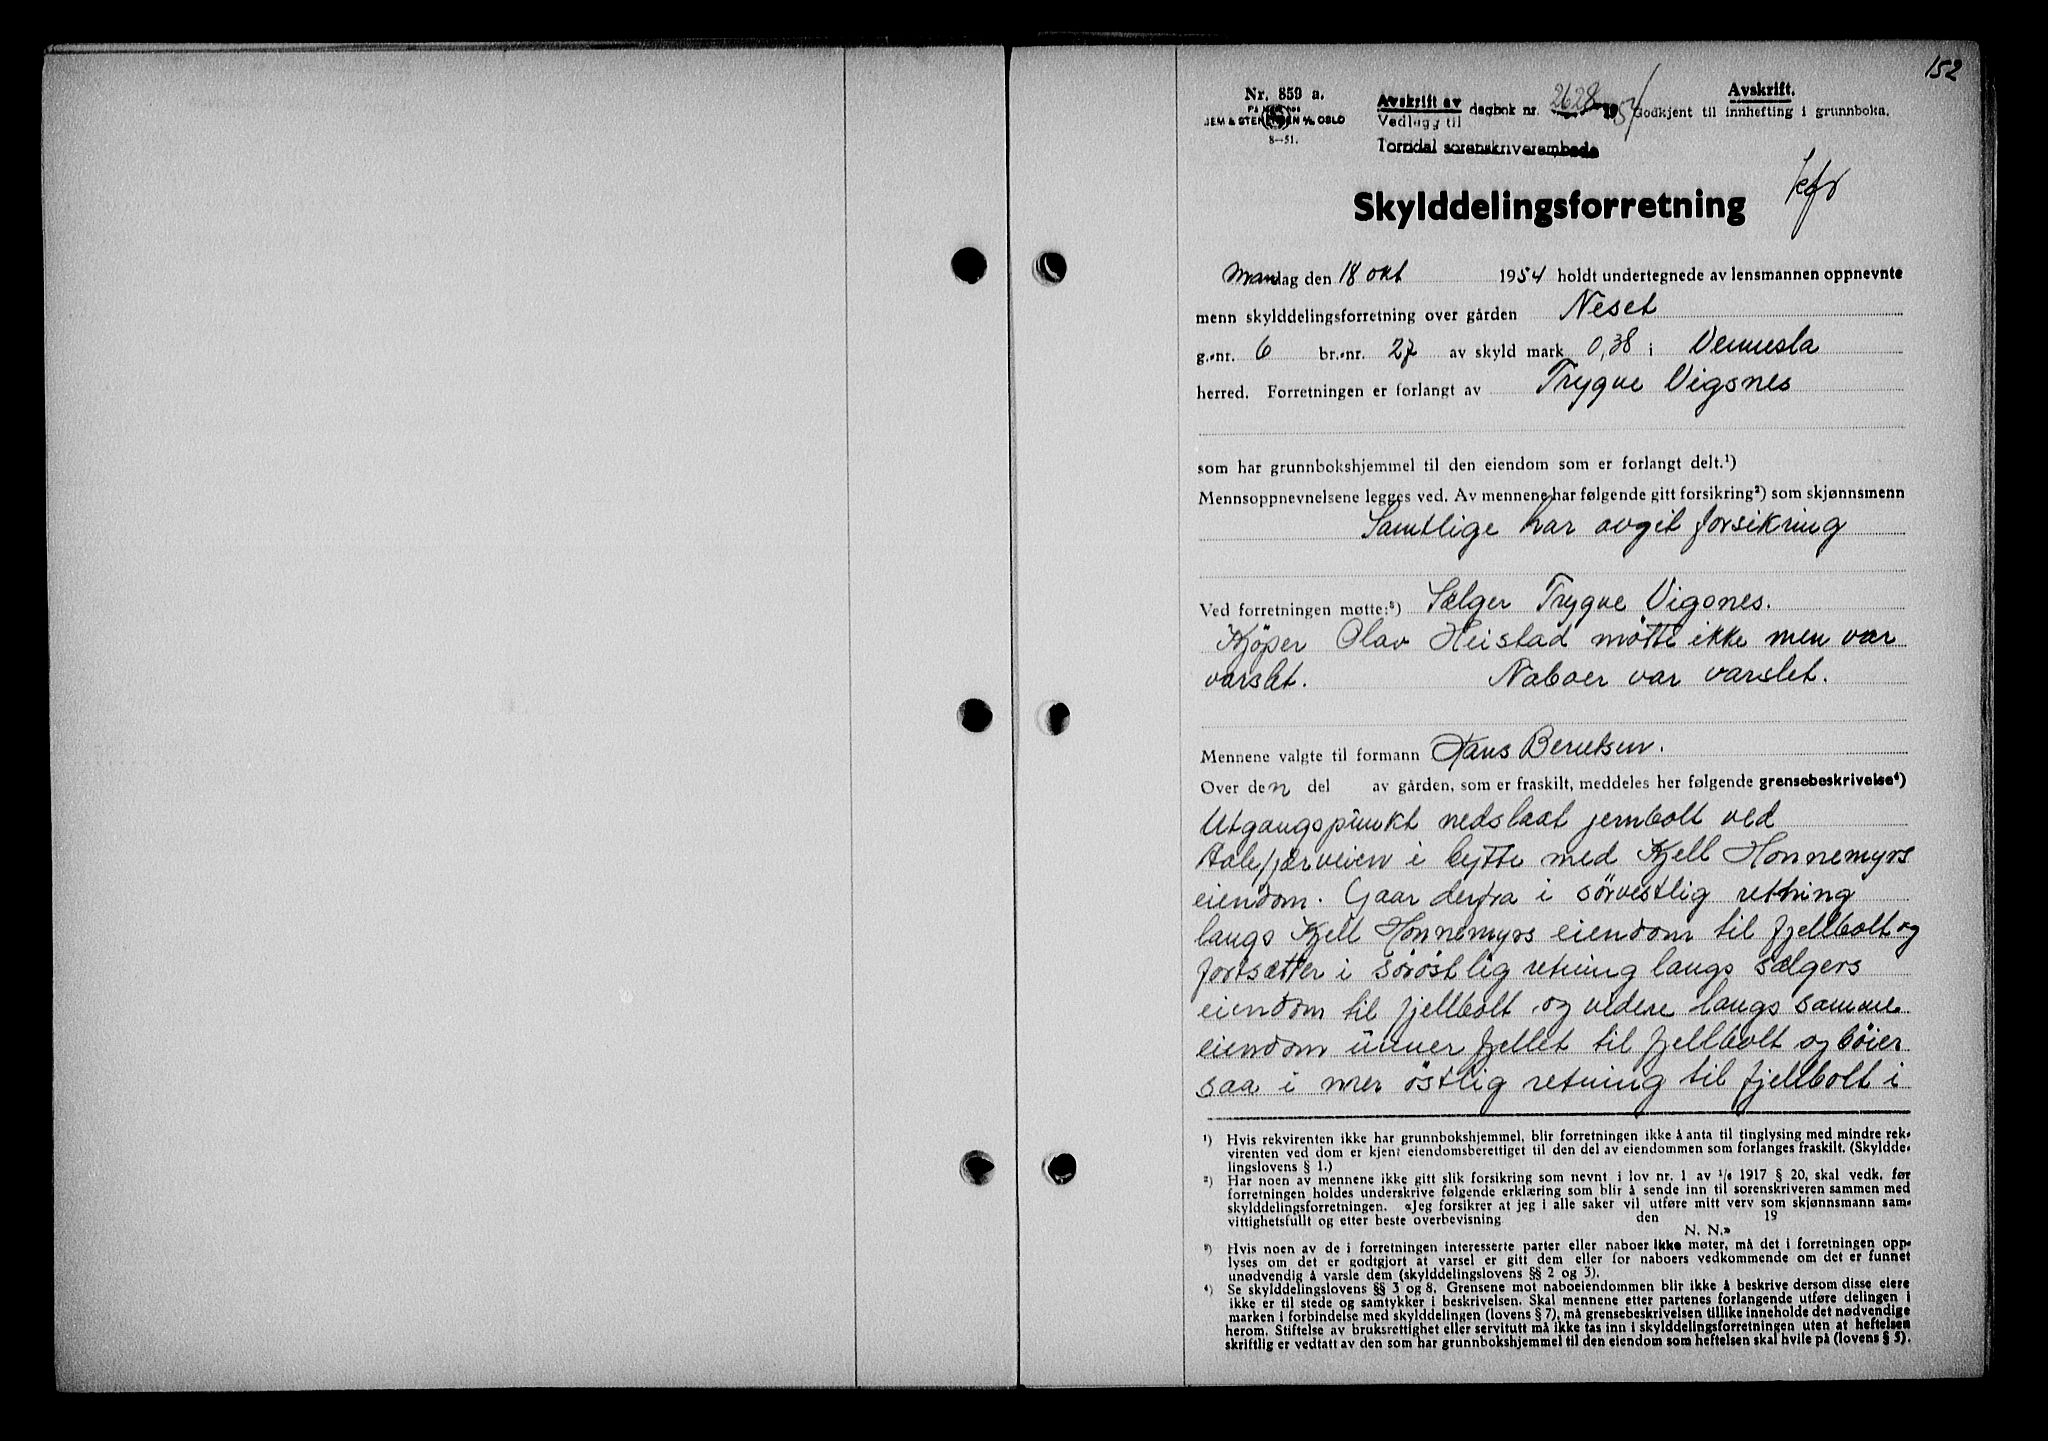 152
Nr. 859 a.
Avskrift av
Vedlegg til
dagbok nr. 2628 1954
Torridal sorenskriverembede
Avskrift.
Godkjent til innhefting i grunnboka.
8—51.
Skylddelingsforretning
Mandag den 18 okt 1954 holdt undertegnede av lensmannen oppnevnte
menn skylddelingsforretning over gården Neset
g.-nr. 6 br.-nr. 27 av skyld mark 0,38 i Vennesla
herred. Forretningen er forlangt av Trygve Vigsnes
som har grunnbokshjemmel til den eiendom som er forlangt delt.¹)
Mennsoppnevnelsene legges ved. Av mennene har følgende gitt forsikring²) som skjønnsmenn
Samtlige har avgit forsikring
Ved forretningen møtte:³) Sælger Trygve Vigsnes.
Kjöper Olav Heistad møtte ikke men var
varslet. Naboer var varslet.
Mennene valgte til formann Hans Berntsen.
Over den del av gården, som er fraskilt, meddeles her følgende grensebeskrivelse⁴)
Utgangspunkt nedslaat jernbolt ved
Aalefjærveien i bytte med Kjell Honnemyrs
eiendom. Gaar derfra i sörvestlig retning
langs Kjell Honnemyrs eiendom til fjellbolt og
fortsætter i söröstlig retning langs sælgers
eiendom til fjellbolt og videre langs samme
eiendom unner fjellet til fjellbolt og böier
saa i mer östlig retning til fjellbolt i
¹) Hvis rekvirenten ikke har grunnbokshjemmel, blir forretningen ikke å anta til tinglysing med mindre rek-
virenten ved dom er kjent eiendomsberettiget til den del av eiendommen som forlanges fraskilt. (Skyldde-
lingslovens § 1.)
²) Har noen av mennene ikke gitt slik forsikring som nevnt i lov nr. 1 av 1/6 1917 § 20, skal vedk. før
forretningen holdes underskrive følgende erklæring som blir å sende inn til sorenskriveren sammen med
skylddelingsforretningen. «Jeg forsikrer at jeg i alle saker vil utføre mitt verv som skjønnsmann sam-
vittighetsfullt og etter beste overbevisning den 19
N. N.»
³) Hvis noen av de i forretningen interesserte parter eller naboer ikke møter, må det i forretningen opp-
lyses om det er godtgjort at varsel er gitt dem eller for naboers vedkommende om det er funnet
unødvendig å varsle dem (skylddelingslovens §§ 2 og 3).
⁴) Se skylddelingslovens §§ 3 og 8. Grensene mot naboeiendommen blir ikke å beskrive dersom disse eiere
ikke er til stede og samtykker i beskrivelsen. Skal mennene etter partenes forlangende utføre delingen i
marken i forbindelse med skylddelingen (lovens § 7), må grensebeskrivelsen tillike inneholde det nødvendige
herom. Stiftelse av bruksrettighet eller servitutt må ikke tas inn i skylddelingsforretningen uten at heftelsen
skriftlig er vedtatt av den som har grunnbokshjemmel til den eiendom som heftelsen skal hvile på (lovens § 5).